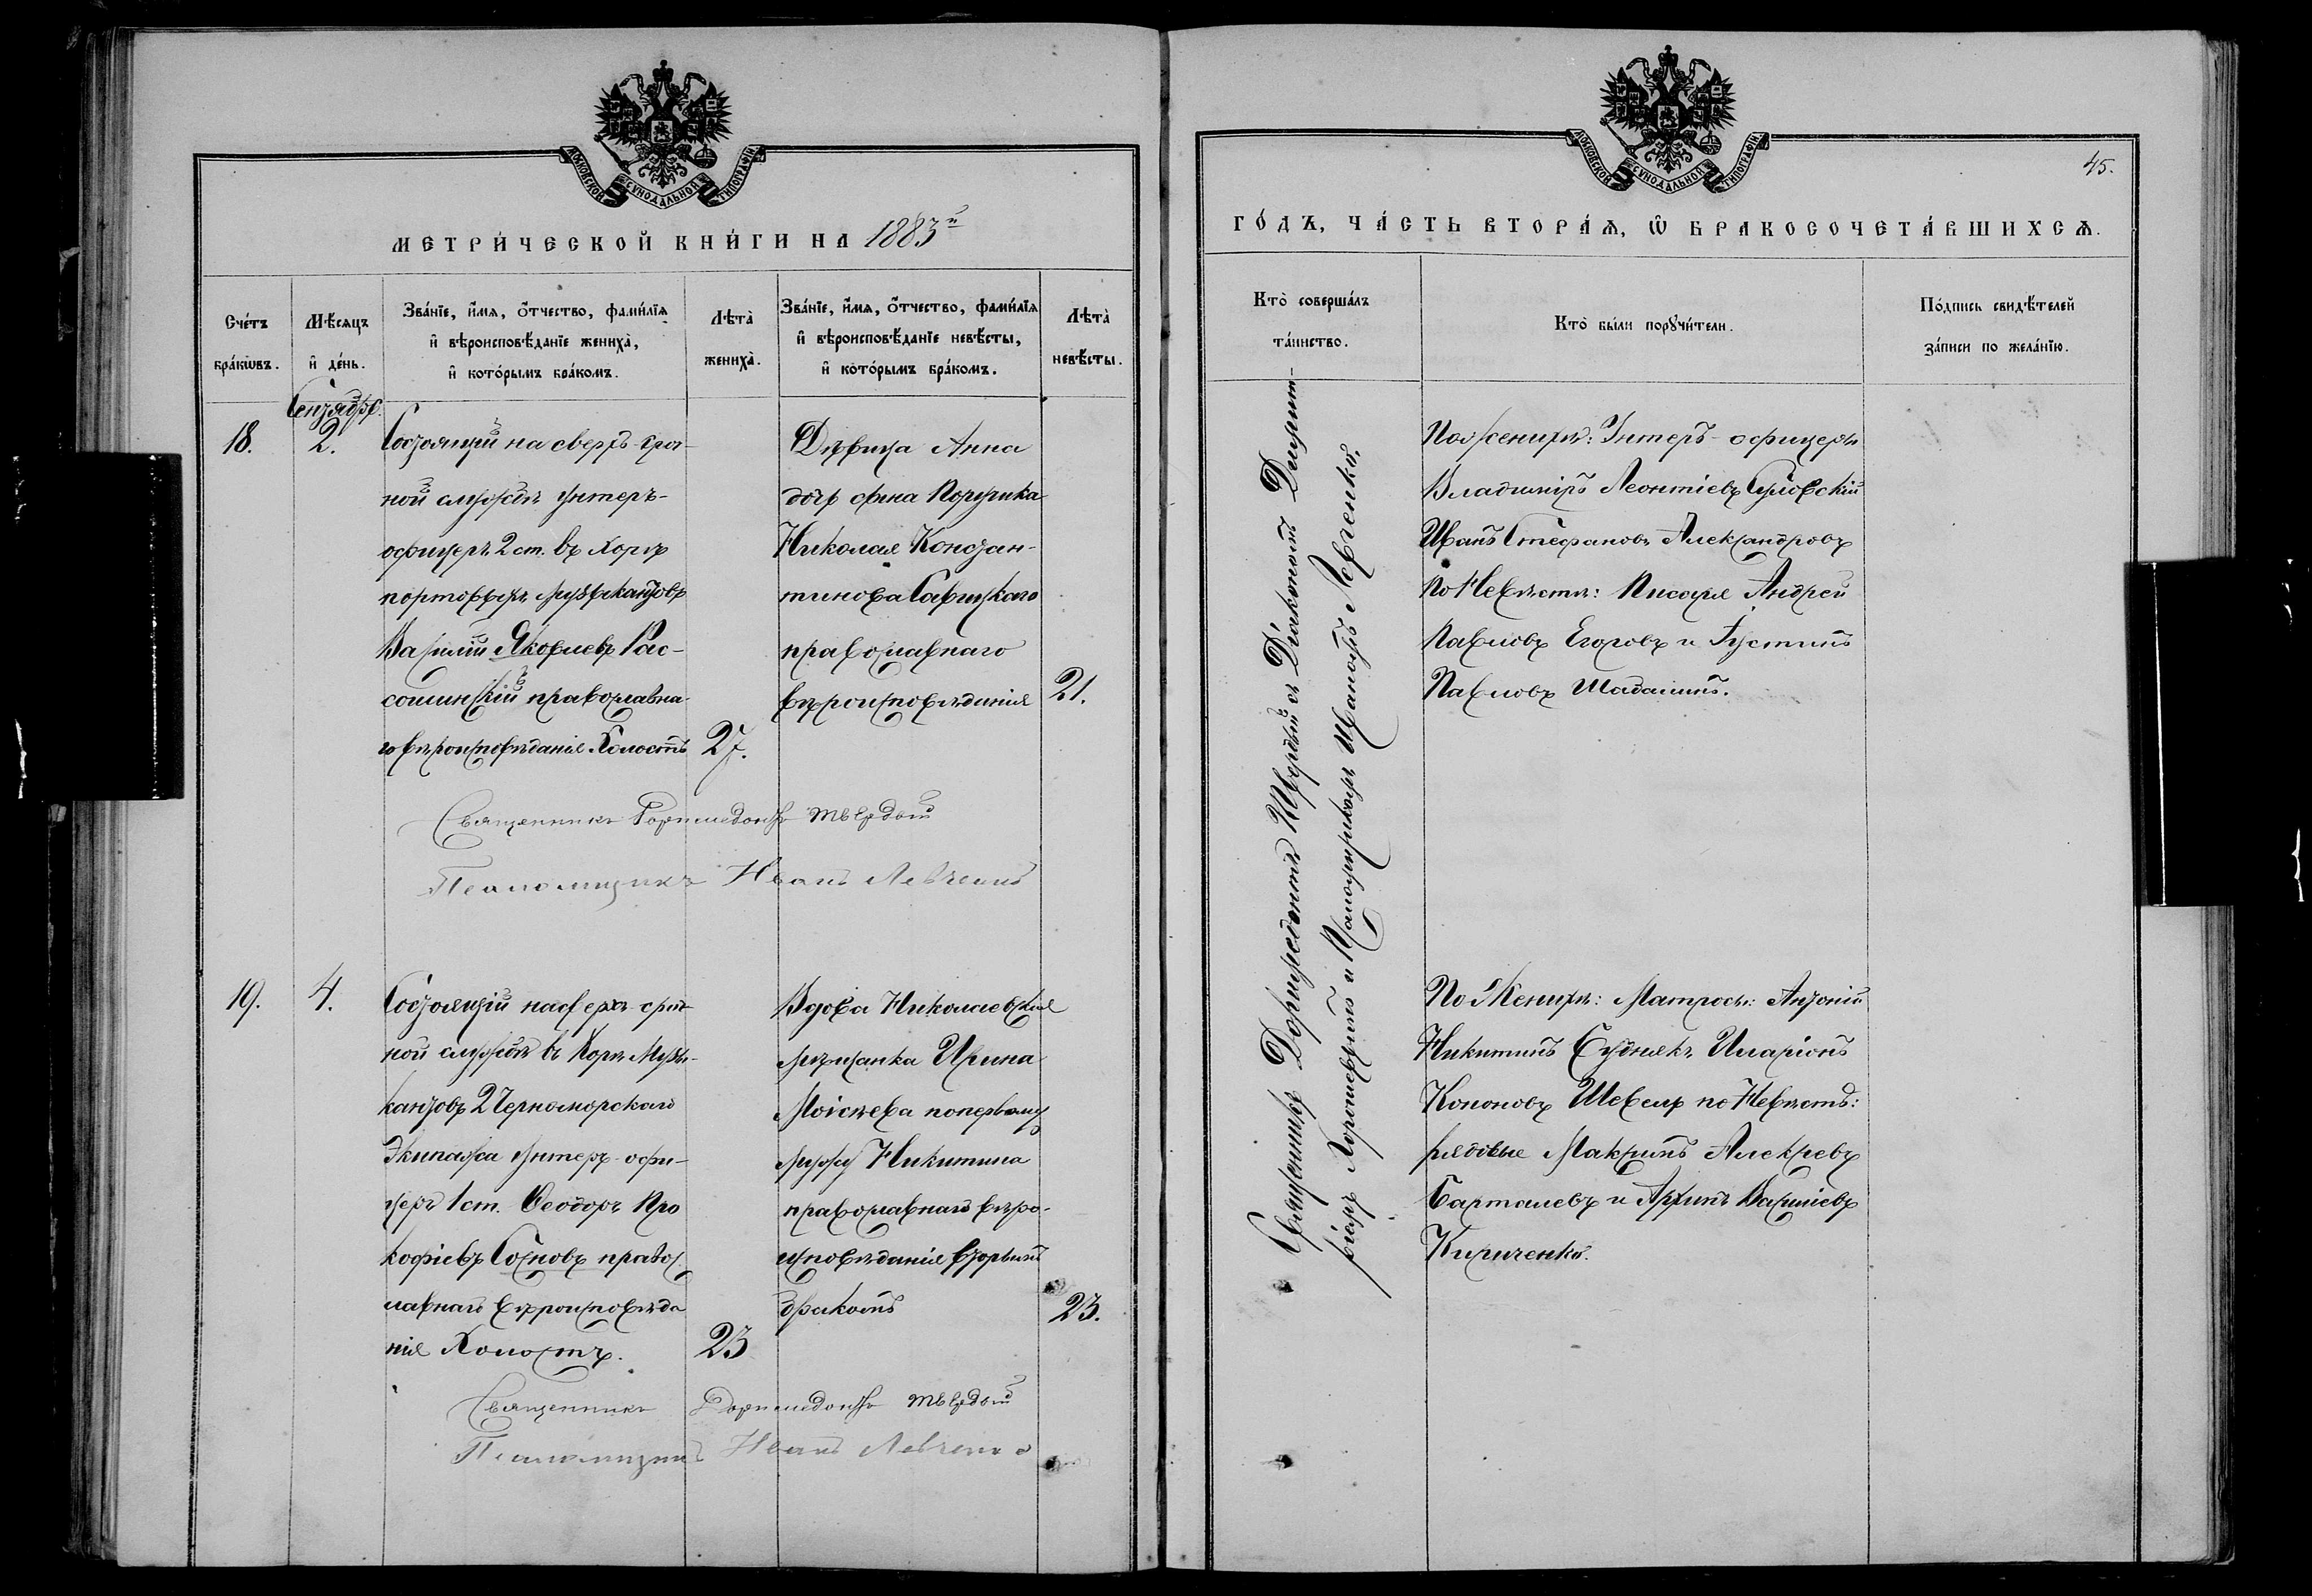 МОСКОВСКОЙ СУНОДАЛЬНОЙ ТИПОГРАФІИ
МЕТРИ́ЧЕСКОЙ КНИ́ГИ НА 1883й
Сче́тъ бра́кѡвъ.
Мѣ́сяцъ и҆ де́нь.
Зва́нїе, и҆́мѧ, ѻ҆́тчество, фами́лїѧ
и҆ вѣроисповѣ́данїе жениха̀,
и҆ кото́рымъ бра́комъ.
Лѣта̀ жениха̀.
Зва́нїе, и҆́мѧ, ѻ҆́тчество, фами́лїѧ
и҆ вѣроисповѣ́данїе невѣ́сты,
и҆ кото́рымъ бра́комъ.
Лѣта̀ невѣ́сты.
Сентябрь.
18.
2.
Состоящій на сверхъ-сроч-
ной службѣ унтеръ-
офицеръ 2 ст. въ Хорѣ
портовыхъ музыкантовъ
Василій Яковлевъ Рас-
сошинскій православна-
го вѣроисповѣданія Холостъ
27.
Дѣвица Анна
дочь сына Поручика
Николая Констан-
тинова Савицкаго
православнаго
вѣроисповѣданія
21.
Священникъ Доримедонтъ Твердый
Псаломщикъ Иванъ Левченко
19.
4.
Состоящій на сверхъ-сроч-
ной службѣ въ Хорѣ Музы-
кантовъ 2 Черноморскаго
Экипажа Унтеръ-офи-
церъ 1 ст. Ѳеодоръ Про
кофіевъ Сосновъ правос
лавнаго вѣроисповѣда
нія Холостъ.
23
Вдова Николаевская
мѣщанка Ирина
Моісѣева по первому
мужу Никитина
православнаго вѣро-
исповѣданія вторымъ
бракомъ
23.
Священникъ Доримедонтъ Твердый
Псаломщикъ Иванъ Левченко
МОСКОВСКОЙ СУНОДАЛЬНОЙ ТИПОГРАФІИ
45.
ГО́ДЪ, ЧА́СТЬ ВТОРА́Ѧ, Ѡ҆ БРАКОСОЧЕТА́ВШИХСѦ.
Кто̀ соверша́лъ та́инство.
Кто̀ бы́ли порꙋчи́тели.
По́дпись свидѣ́телей за́писи по жела́нїю.
Священникъ Доримедонтъ Твердый съ Діакономъ Димит-
ріемъ Хорошевымъ и Псаломщикомъ Иваномъ Левченко.
По Женихѣ: Унтеръ-офицеры
Владиміръ Леонтіевъ
Иванъ Стефановъ Александровъ
По Невѣстѣ: Писаря Андрей
Павловъ Егоровъ и Густинъ
Павловъ Шабалинъ.
По Женихѣ: Матросы: Антоній
Никитинъ Иларіонъ
Кононовъ по Невѣстѣ:
рядовые Максимъ Алексѣевъ
и Василіевъ
Кириченко.